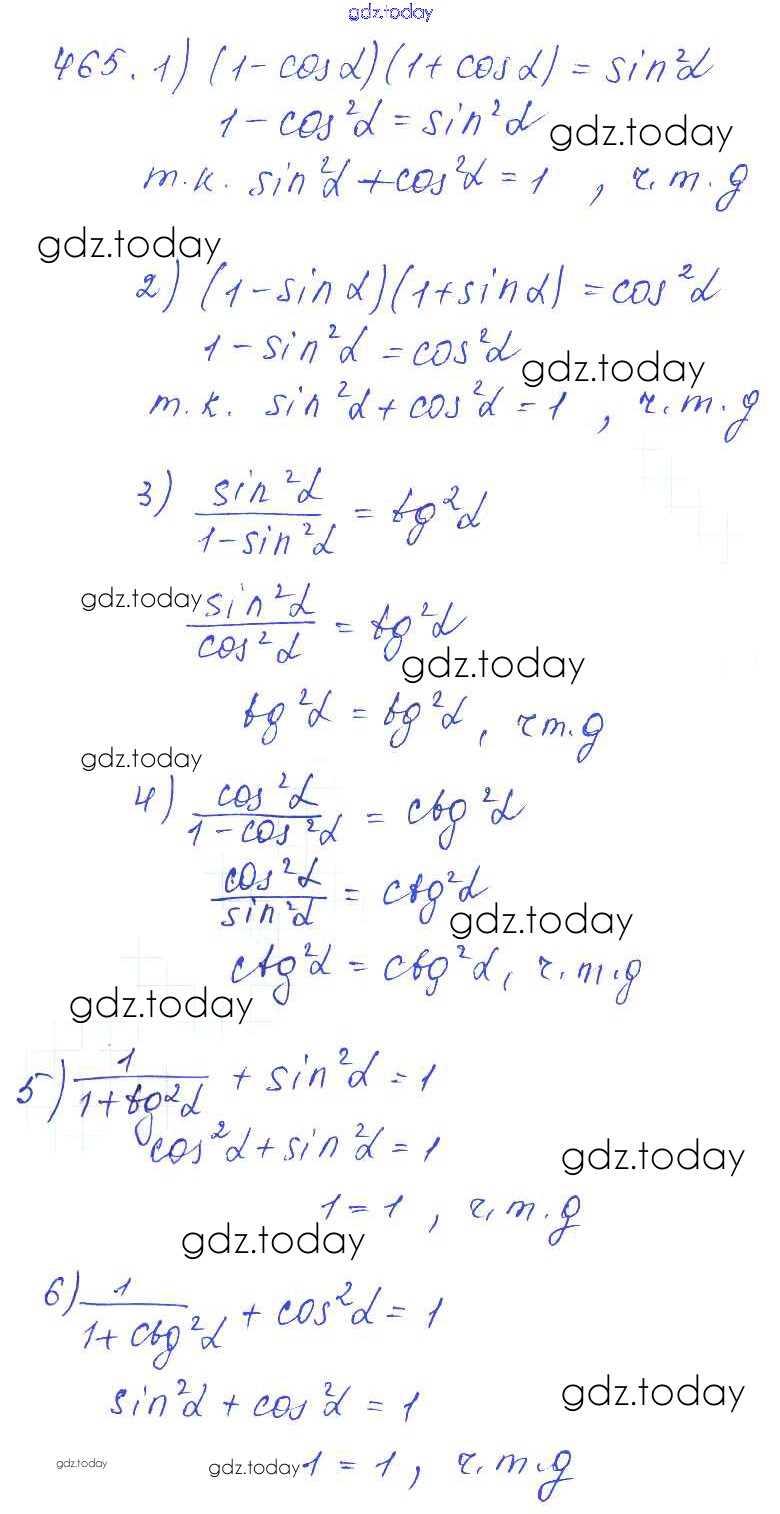 gdz.today
465. 1) (1 - cos α)(1 + cos α) = sin²α
1 - cos²α = sin²α
gdz.today
т.к. sin²α + cos²α = 1 , ч.т.д
gdz.today
2) (1 - sin α)(1 + sin α) = cos²α
1 - sin²α = cos²α
gdz.today
т.к. sin²α + cos²α = 1 , ч.т.д
3) sin²α / (1 - sin²α) = tg²α
gdz.today
sin²α / cos²α = tg²α
gdz.today
tg²α = tg²α , ч т.д
gdz.today
4) cos²α / (1 - cos²α) = ctg²α
cos²α / sin²α = ctg²α
gdz.today
ctg²α = ctg²α , ч.т.д
gdz.today
5) 1 / (1 + tg²α) + sin²α = 1
cos²α + sin²α = 1
gdz.today
1 = 1 , ч.т.д
gdz.today
6) 1 / (1 + ctg²α) + cos²α = 1
sin²α + cos²α = 1
gdz.today
gdz.today
gdz.today
1 = 1 , ч.т.д